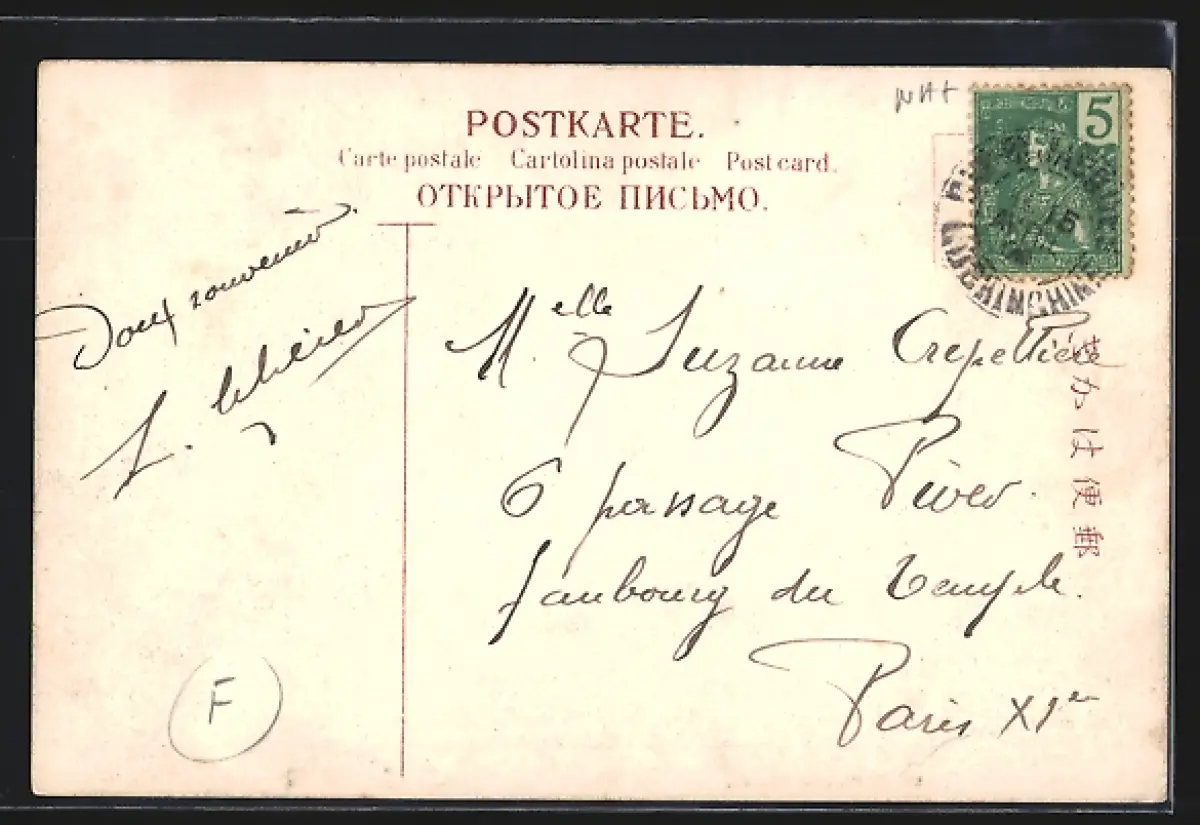 POSTKARTE.
Carte postale Cartolina postale Post card.
ОТКРЫТОЕ ПИСЬМО.
5
15
COCHINCHINE
Doux souvenir
L.
Melle Suzanne Crepellière
6 passage Piver
faubourg du Temple.
Paris XIe
郵便はか書
F